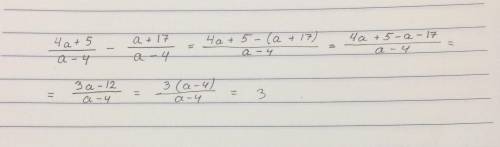 (4a+5)/(a-4) - (a+17)/(a-4) = (4a+5-(a+17))/(a-4) = (4a+5-a-17)/(a-4) =
= (3a-12)/(a-4) = (3(a-4))/(a-4) = 3